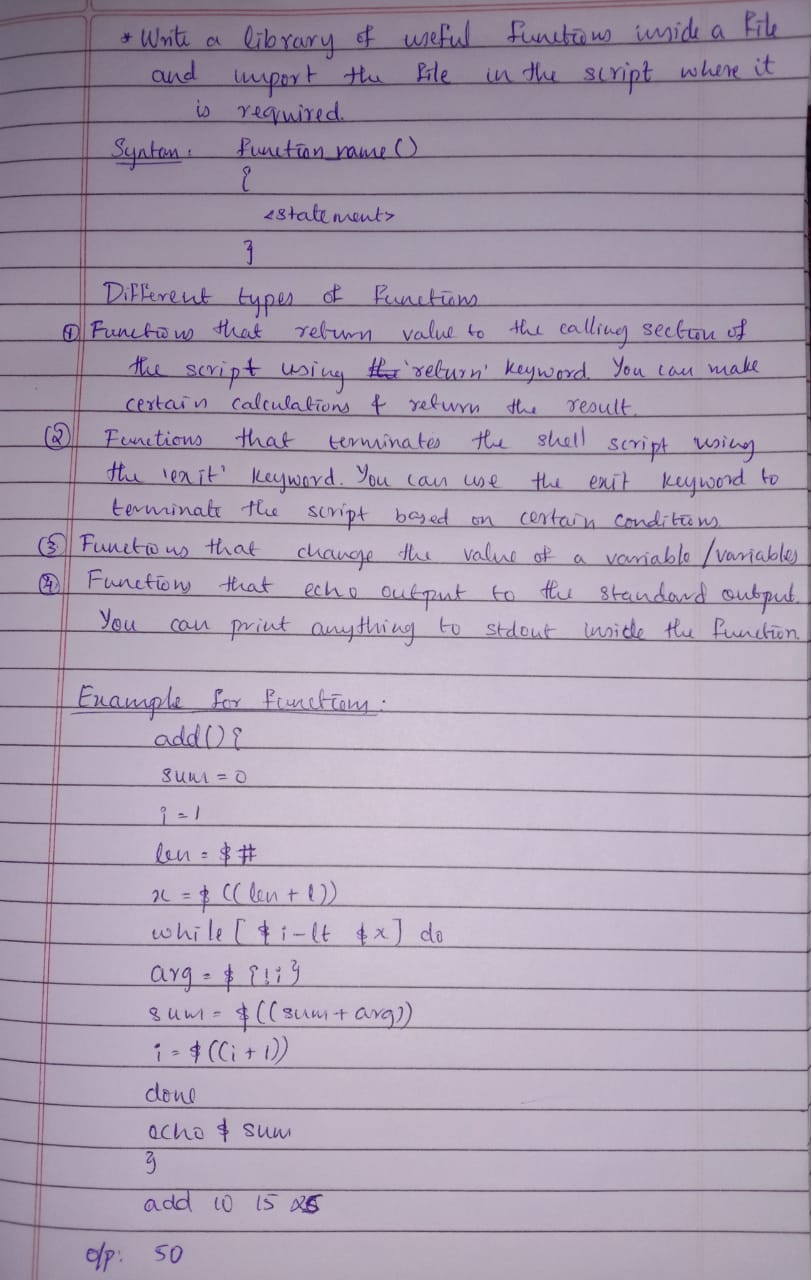 * Write a library of useful functions inside a file
and import the file in the script where it
is required.
Syntax: function_name()
{
<statement>
}
Different types of functions
① Functions that return value to the calling section of
the script using the 'return' keyword. You can make
certain calculations & return the result.
② Functions that terminates the shell script using
the 'exit' keyword. You can use the exit keyword to
terminate the script based on certain conditions
③ Functions that change the value of a variable/variables
④ Functions that echo output to the standard output.
You can print anything to stdout inside the function.
Example for functions:
add(){
sum=0
i=1
len=$#
x=$((len+1))
while [ $i -lt $x ] do
arg=${!i}
sum=$((sum+arg))
i=$((i+1))
done
echo $sum
}
add 10 15 25
o/p: 50